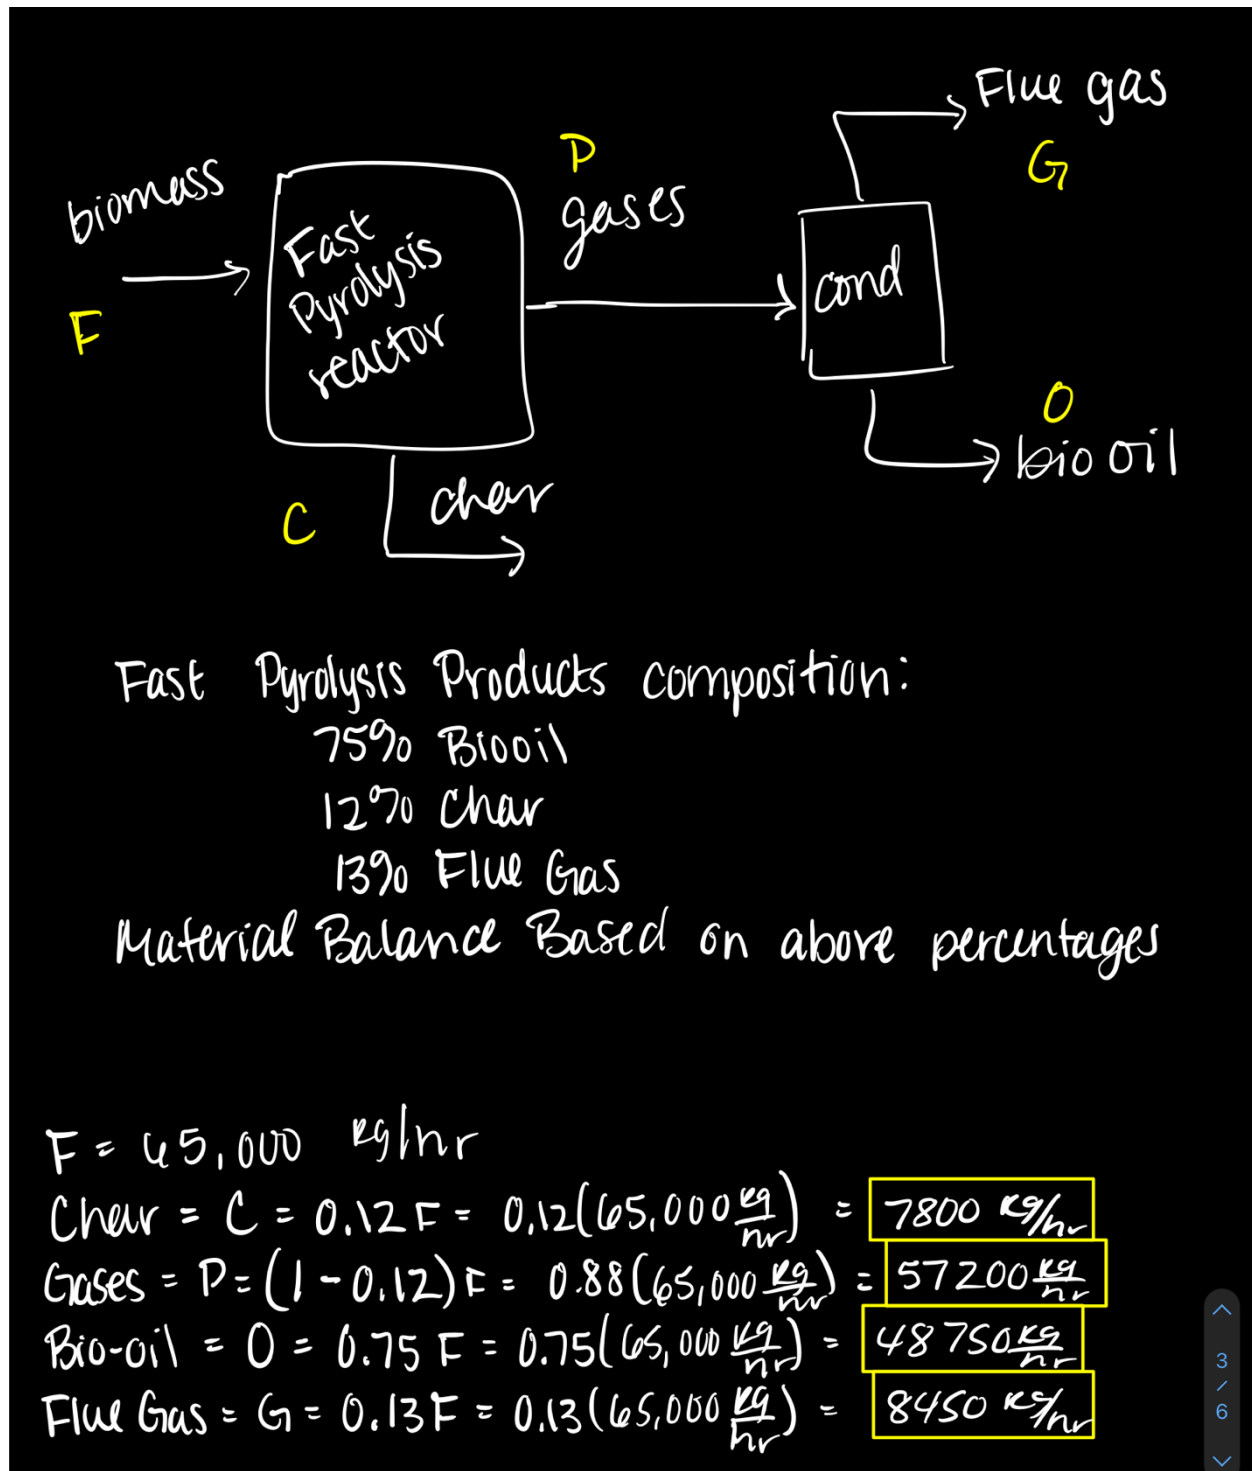 Flue gas
G
P
gases
biomass
F
Fast
Pyrolysis
reactor
cond
O
bio oil
C
char
Fast Pyrolysis Products composition:
75% Biooil
12% Char
13% Flue Gas
Material Balance Based on above percentages
F = 65,000 kg/hr
Char = C = 0.12 F = 0.12(65,000 kg/hr) = 7800 kg/hr
Gases = P = (1 - 0.12) F = 0.88(65,000 kg/hr) = 57200 kg/hr
Bio-oil = O = 0.75 F = 0.75(65,000 kg/hr) = 48750 kg/hr
Flue Gas = G = 0.13 F = 0.13(65,000 kg/hr) = 8450 kg/hr
3
/
6